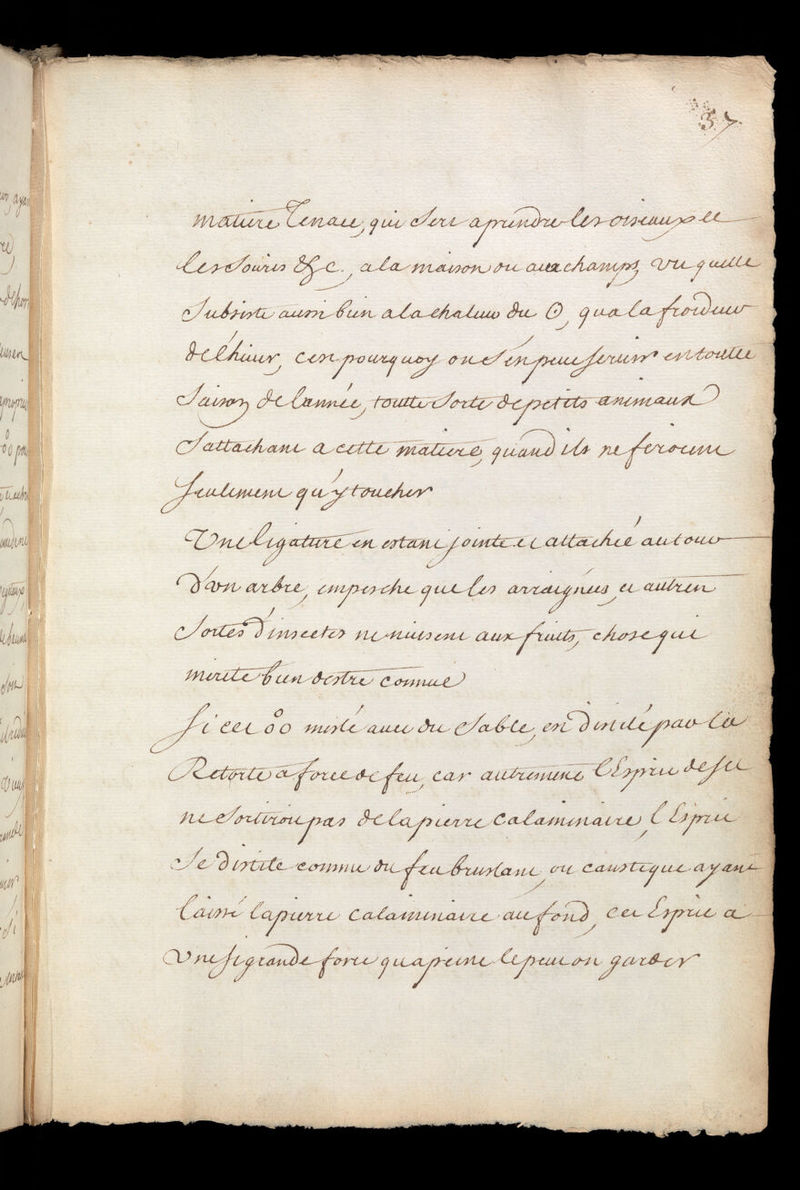 37
matiere Tenace, qui sert aprendre les oiseaux et
les souris &c., ala maison ou aux champs, vu quelle
Subsiste aussi bien ala chaleur du ☉, qua la froideur
de l'hiuer, cest pourquoy on s'en peut seruir en toutte
Saison de lannée, toutte sorte de petits animaux
Sattachant a cette matiere, quand ils ne feroient
seulement qu'y toucher
Une ligature en estant jointe et attachée autour
d'vn arbre, empesche que les arraignées, et autres
Sortes d'insectes ne nuisent aux fruits, chose qui
merite bien destre connue
Si cet o͚o meslé auec du Sable, est distilé par la
Retorte a force de feu, car autrement l'Esprit de sel
ne Sortiroit pas de la pierre Calaminaire, l'Esprit
Se distile comme du feu bruslant, ou caustique ayant
laissé la pierre calaminaire au fond, cet Esprit a
Vne si grande force qua peine le peut on garder